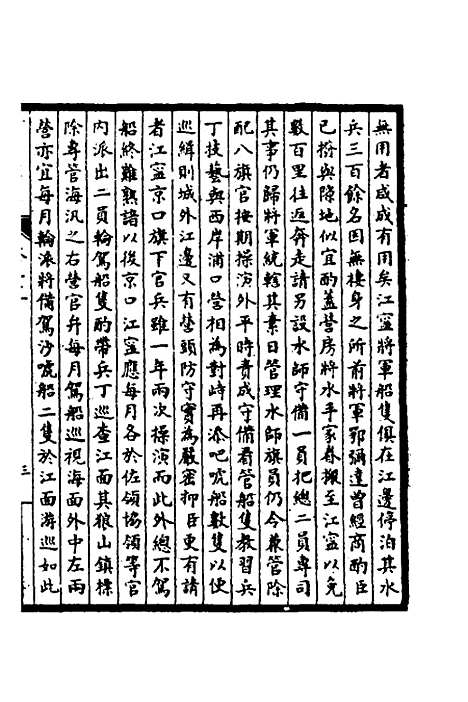 無用者咸成有用矣江寧將軍船隻俱在江邊停泊其水
兵三百餘名因無棲身之所前將軍鄂彌達曾經商酌臣
已撥與隙地似宜酌蓋營房將水手家眷搬至江寧以免
數百里往返奔走請另設水師守備一員把總二員專司
其事仍歸將軍統轄其素日管理水師旗員仍令兼管除
配八旗官按期操演外平時責成守備看管船隻教習兵
丁技藝與西岸浦口營相為對峙再添吧唬船數隻以便
巡緝則城外江邊又有營頭防守實為嚴密抑臣更有請
者江寧京口旗下官兵雖一年兩次操演而此外總不駕
船終難熟諳以後京口江寧應每月各於佐領協領等官
內派出二員輪駕船隻酌帶兵丁巡查江面其狼山鎮標
除專管海汛之右營官弁每月駕船巡視海面外中左兩
營亦宜每月輪派將備駕沙唬船二隻於江面游巡如此
三